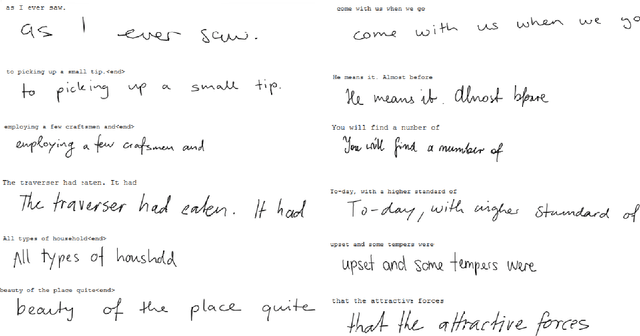 as I ever saw.
as I ever saw.
to picking up a small tip.<end>
to picking up a small tip.
employing a few craftsmen and<end>
employing a few crafsmen and
The traverser had eaten. It had
The traverser had eaten. It had
All types of household<end>
All types of houshold
beauty of the place quite<end>
beauty of the place quite
come with us when we go
come with us when we go
He means it. Almost before
He means it. Almost bfore
You will find a number of
You will find a number of
To-day, with a higher standard of
To-day, with a higher standard of
upset and some tempers were
upset and some tempers were
that the attractive forces
that the attractive forces